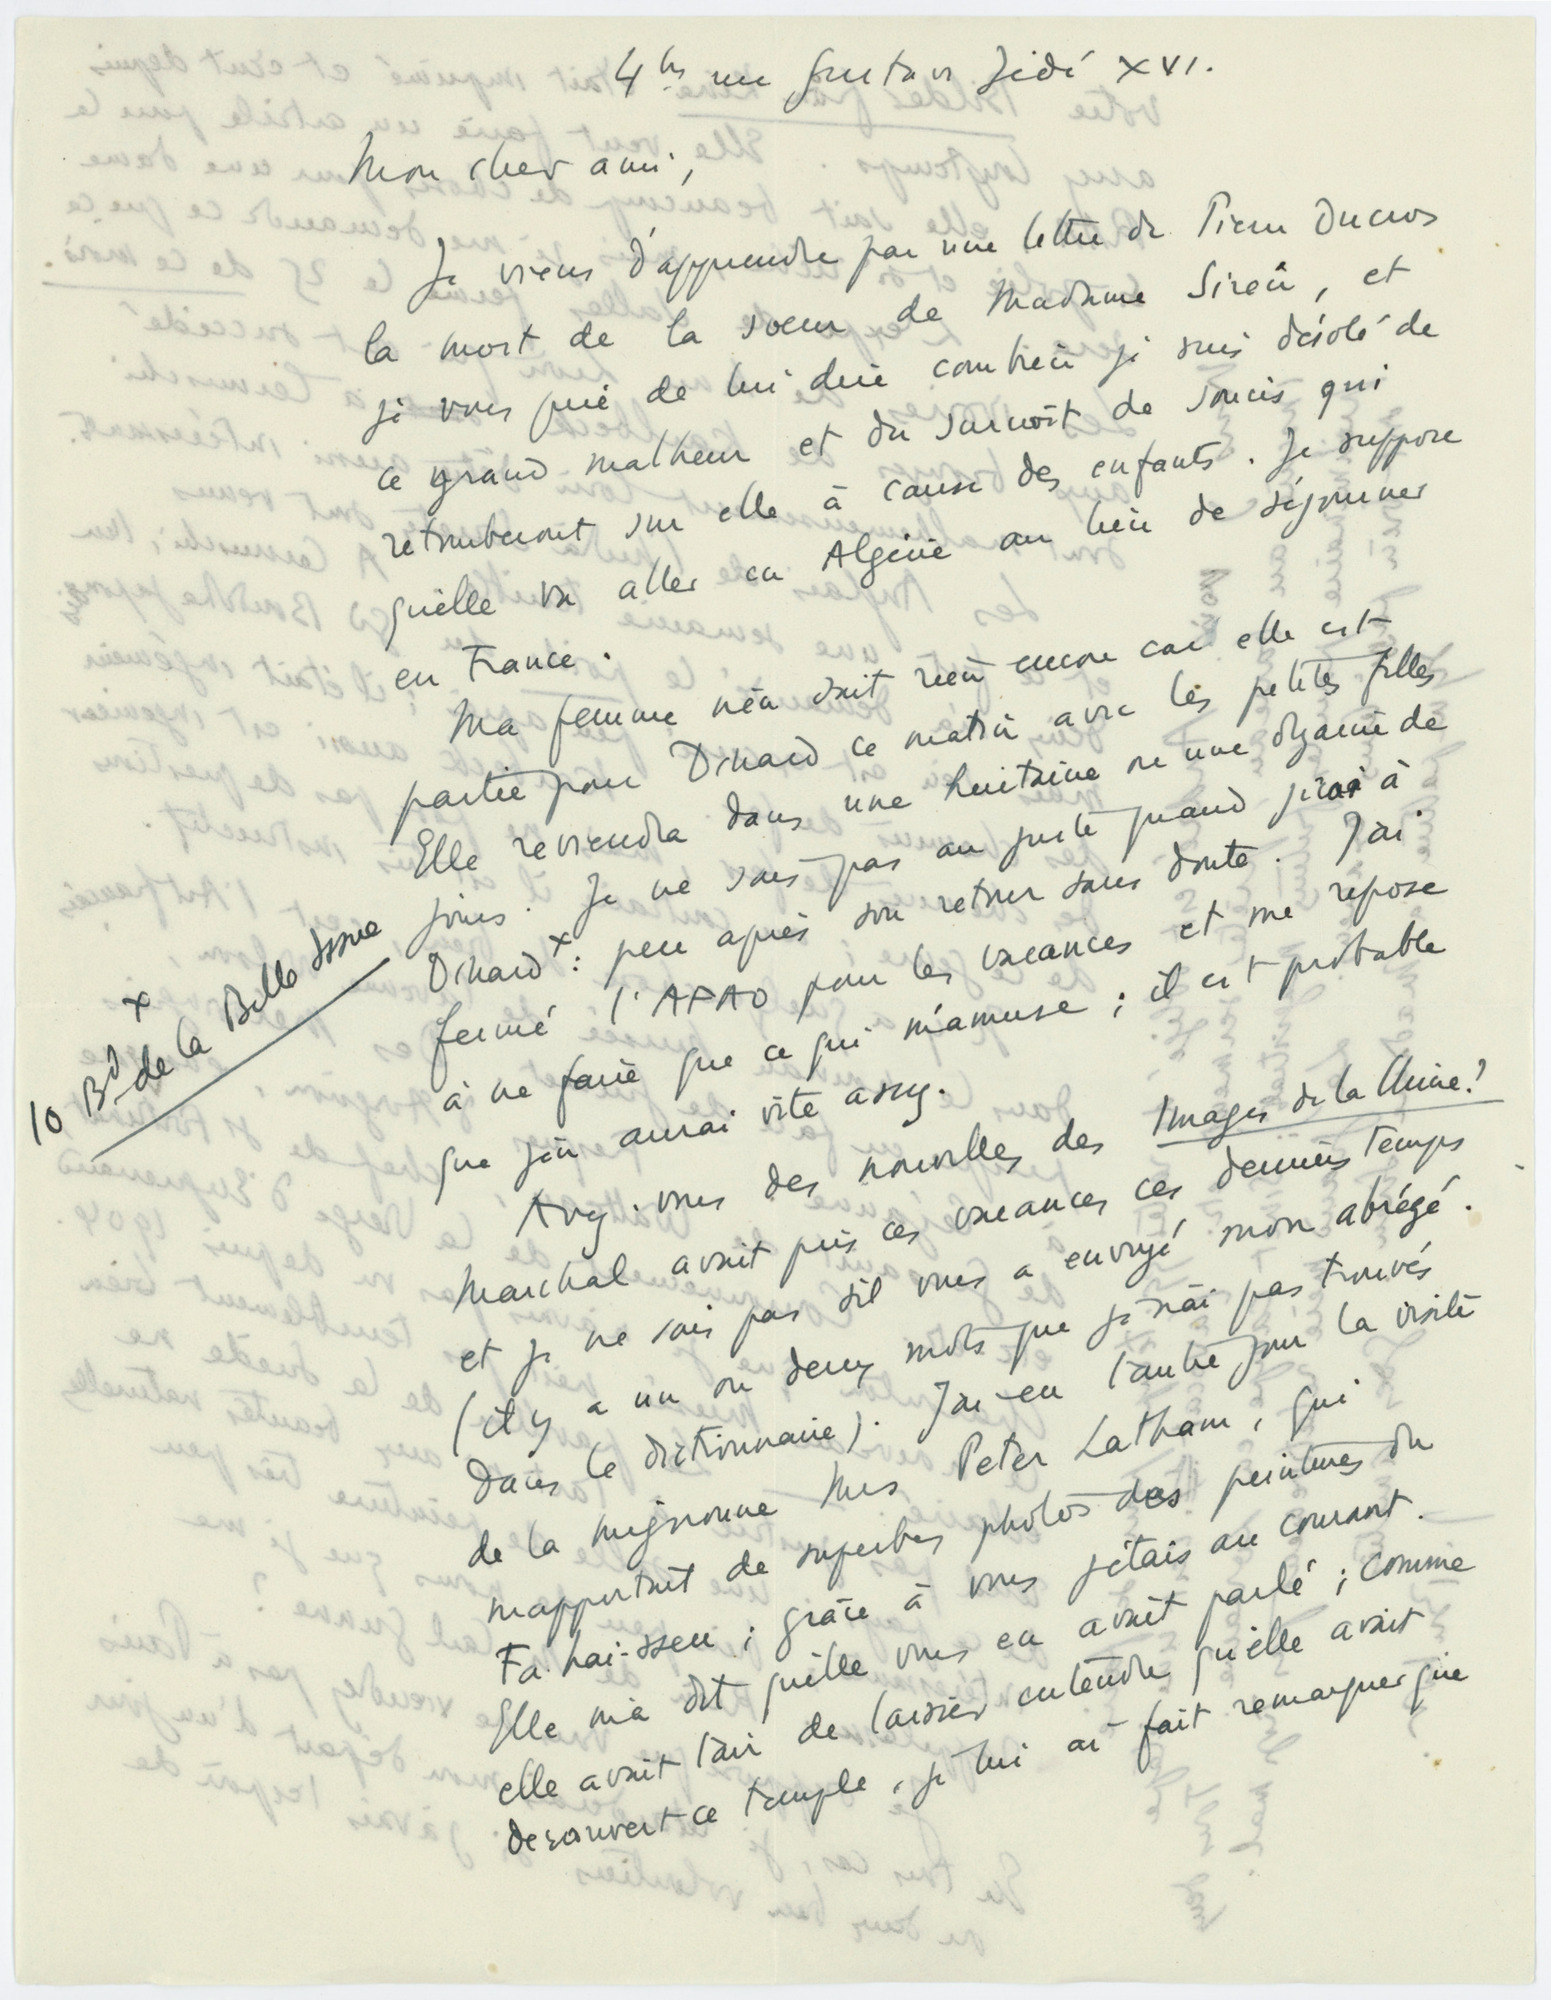 4 bis rue Gustave Zédé XVI.
Mon cher ami,
Je viens d'apprendre par une lettre de Pierre Ducros
la mort de la soeur de Madame Sirén, et
je vous prie de lui dire combien je suis désolé de
ce grand malheur et du surcroît de soucis qui
retomberont sur elle à cause des enfants. Je suppose
qu'elle va aller en Algérie au lieu de séjourner
en France.
Ma femme n'en sait rien encore car elle est
partie pour Dinard ce matin avec les petites filles
Elle reviendra dans une huitaine ou une dizaine de
jours. Je ne sais pas au juste quand j'irai à
Dinard x : peu après son retour sans doute. J'ai
fermé l'AFAO pour les vacances et me repose
à ne faire que ce qui m'amuse ; il est probable
que j'en aurai vite assez.
x
10 Bd de la Belle Issue
Avez-vous des nouvelles des Images de la Chine ?
Marchal avait pris ces vacances ces derniers temps
et je ne sais pas s'il vous a envoyé mon abrégé.
(il y a un ou deux mots que je n'ai pas trouvés
dans le dictionnaire). J'ai eu l'autre jour la visite
de la mignonne Mrs Peter Latham, qui
m'apportait de superbes photos des peintures du
Fa-hai-sseu ; grâce à vous j'étais au courant.
Elle m'a dit qu'elle vous en avait parlé ; comme
elle avait l'air de laisser entendre qu'elle avait
découvert ce temple, je lui ai fait remarquer que